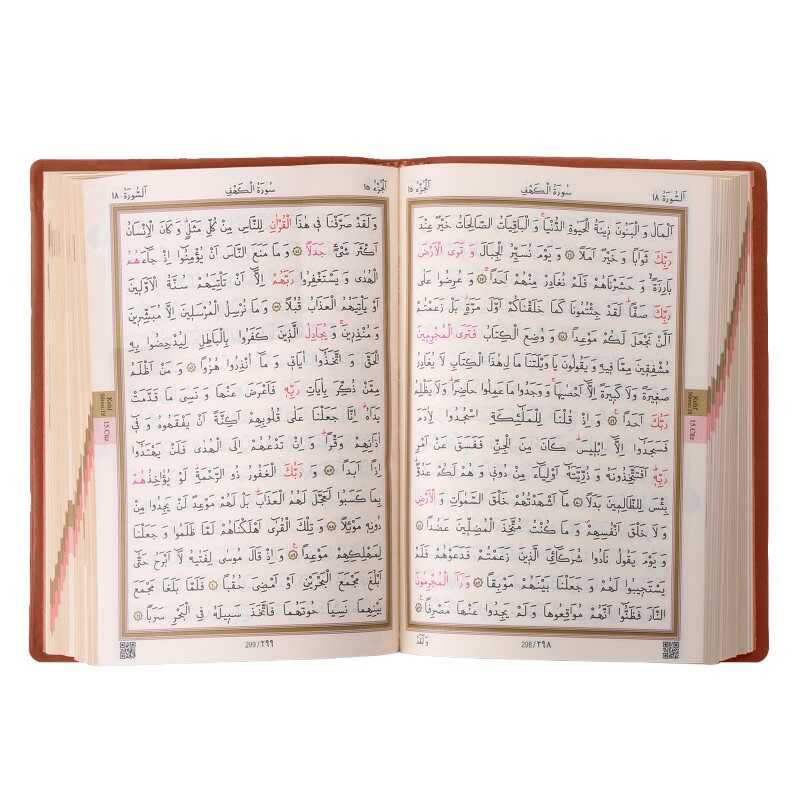 اَلسُّورَةُ ١٨
سُورَةُ الْكَهْفِ
اَلْجُزْءُ ١٥
اَلْمَالُ وَ الْبَنُونَ زٖينَةُ الْحَيٰوةِ الدُّنْيَاۚ وَ الْبَاقِيَاتُ الصَّالِحَاتُ خَيْرٌ عِنْدَ
رَبِّكَ ثَوَابًا وَ خَيْرٌ اَمَلًا ﴿٤٦﴾ وَ يَوْمَ نُسَيِّرُ الْجِبَالَ وَ تَرَى الْاَرْضَ
بَارِزَةًۙ وَ حَشَرْنَاهُمْ فَلَمْ نُغَادِرْ مِنْهُمْ اَحَدًاۚ ﴿٤٧﴾ وَ عُرِضُوا عَلٰى
رَبِّكَ صَفًّاؕ لَقَدْ جِئْتُمُونَا كَمَا خَلَقْنَاكُمْ اَوَّلَ مَرَّةٍؗ بَلْ زَعَمْتُمْ
اَلَّنْ نَجْعَلَ لَكُمْ مَوْعِدًا ﴿٤٨﴾ وَ وُضِعَ الْكِتَابُ فَتَرَى الْمُجْرِمٖينَ
مُشْفِقٖينَ مِمَّا فٖيهِ وَ يَقُولُونَ يَا وَيْلَتَنَا مَا لِهٰذَا الْكِتَابِ لَا يُغَادِرُ
صَغٖيرَةً وَ لَا كَبٖيرَةً اِلَّٓا اَحْصٰيهَاۚ وَ وَجَدُوا مَا عَمِلُوا حَاضِرًاؕ وَ لَا يَظْلِمُ
رَبُّكَ اَحَدًا ﴿٤٩﴾ وَ اِذْ قُلْنَا لِلْمَلٰٓئِكَةِ اسْجُدُوا لِاٰدَمَ
فَسَجَدُٓوا اِلَّٓا اِبْلٖيسَؕ كَانَ مِنَ الْجِنِّ فَفَسَقَ عَنْ اَمْرِ
رَبِّهٖؕ اَفَتَتَّخِذُونَهُ وَ ذُرِّيَّتَهُٓ اَوْلِيَٓاءَ مِنْ دُونٖى وَ هُمْ لَكُمْ عَدُوٌّؕ
بِئْسَ لِلظَّالِمٖينَ بَدَلًا ﴿٥٠﴾ مَٓا اَشْهَدْتُهُمْ خَلْقَ السَّمٰوَاتِ وَ الْاَرْضِ
وَ لَا خَلْقَ اَنْفُسِهِمْۖ وَ مَا كُنْتُ مُتَّخِذَ الْمُضِلّٖينَ عَضُدًا ﴿٥١﴾
وَ يَوْمَ يَقُولُ نَادُوا شُرَكَٓائِىَ الَّذٖينَ زَعَمْتُمْ فَدَعَوْهُمْ فَلَمْ
يَسْتَجٖيبُوا لَهُمْ وَ جَعَلْنَا بَيْنَهُمْ مَوْبِقًا ﴿٥٢﴾ وَ رَاَ الْمُجْرِمُونَ
النَّارَ فَظَنُّٓوا اَنَّهُمْ مُوَاقِعُوهَا وَ لَمْ يَجِدُوا عَنْهَا مَصْرِفًاࣖ ﴿٥٣﴾
298 / ٢٩٨
وَ لَقَدْ
Kehf Sûresi:18
15.Cüz
اَلسُّورَةُ ١٨
سُورَةُ الْكَهْفِ
اَلْجُزْءُ ١٥
وَ لَقَدْ صَرَّفْنَا فٖى هٰذَا الْقُرْاٰنِ لِلنَّاسِ مِنْ كُلِّ مَثَلٍؕ وَ كَانَ الْاِنْسَانُ
اَكْثَرَ شَىْءٍ جَدَلًا ﴿٥٤﴾ وَ مَا مَنَعَ النَّاسَ اَنْ يُؤْمِنُٓوا اِذْ جَٓاءَهُمُ
الْهُدٰى وَ يَسْتَغْفِرُوا رَبَّهُمْ اِلَّٓا اَنْ تَاْتِيَهُمْ سُنَّةُ الْاَوَّلٖينَ
اَوْ يَاْتِيَهُمُ الْعَذَابُ قُبُلًا ﴿٥٥﴾ وَ مَا نُرْسِلُ الْمُرْسَلٖينَ اِلَّا مُبَشِّرٖينَ
وَ مُنْذِرٖينَۚ وَ يُجَادِلُ الَّذٖينَ كَفَرُوا بِالْبَاطِلِ لِيُدْحِضُوا بِهِ
الْحَقَّ وَ اتَّخَذُٓوا اٰيَاتٖى وَ مَٓا اُنْذِرُوا هُزُوًا ﴿٥٦﴾ وَ مَنْ اَظْلَمُ
مِمَّنْ ذُكِّرَ بِاٰيَاتِ رَبِّهٖ فَاَعْرَضَ عَنْهَا وَ نَسِىَ مَا قَدَّمَتْ
يَدَاهُؕ اِنَّا جَعَلْنَا عَلٰى قُلُوبِهِمْ اَكِنَّةً اَنْ يَفْقَهُوهُ وَ فٖٓى
اٰذَانِهِمْ وَقْرًاؕ وَ اِنْ تَدْعُهُمْ اِلَى الْهُدٰى فَلَنْ يَهْتَدُٓوا
اِذًا اَبَدًا ﴿٥٧﴾ وَ رَبُّكَ الْغَفُورُ ذُو الرَّحْمَةِؕ لَوْ يُؤَاخِذُهُمْ
بِمَا كَسَبُوا لَعَجَّلَ لَهُمُ الْعَذَابَؕ بَلْ لَهُمْ مَوْعِدٌ لَنْ يَجِدُوا مِنْ
دُونِهٖ مَوْئِلًا ﴿٥٨﴾ وَ تِلْكَ الْقُرٰٓى اَهْلَكْنَاهُمْ لَمَّا ظَلَمُوا وَ جَعَلْنَا
لِمَهْلِكِهِمْ مَوْعِدًاࣖ ﴿٥٩﴾ وَ اِذْ قَالَ مُوسٰى لِفَتٰيهُ لَٓا اَبْرَحُ حَتّٰٓى
اَبْلُغَ مَجْمَعَ الْبَحْرَيْنِ اَوْ اَمْضِىَ حُقُبًا ﴿٦٠﴾ فَلَمَّا بَلَغَا مَجْمَعَ
بَيْنِهِمَا نَسِيَا حُوتَهُمَا فَاتَّخَذَ سَبٖيلَهُ فِى الْبَحْرِ سَرَبًا ﴿٦١﴾
299 / ٢٩٩
Kehf Sûresi:18
15.Cüz